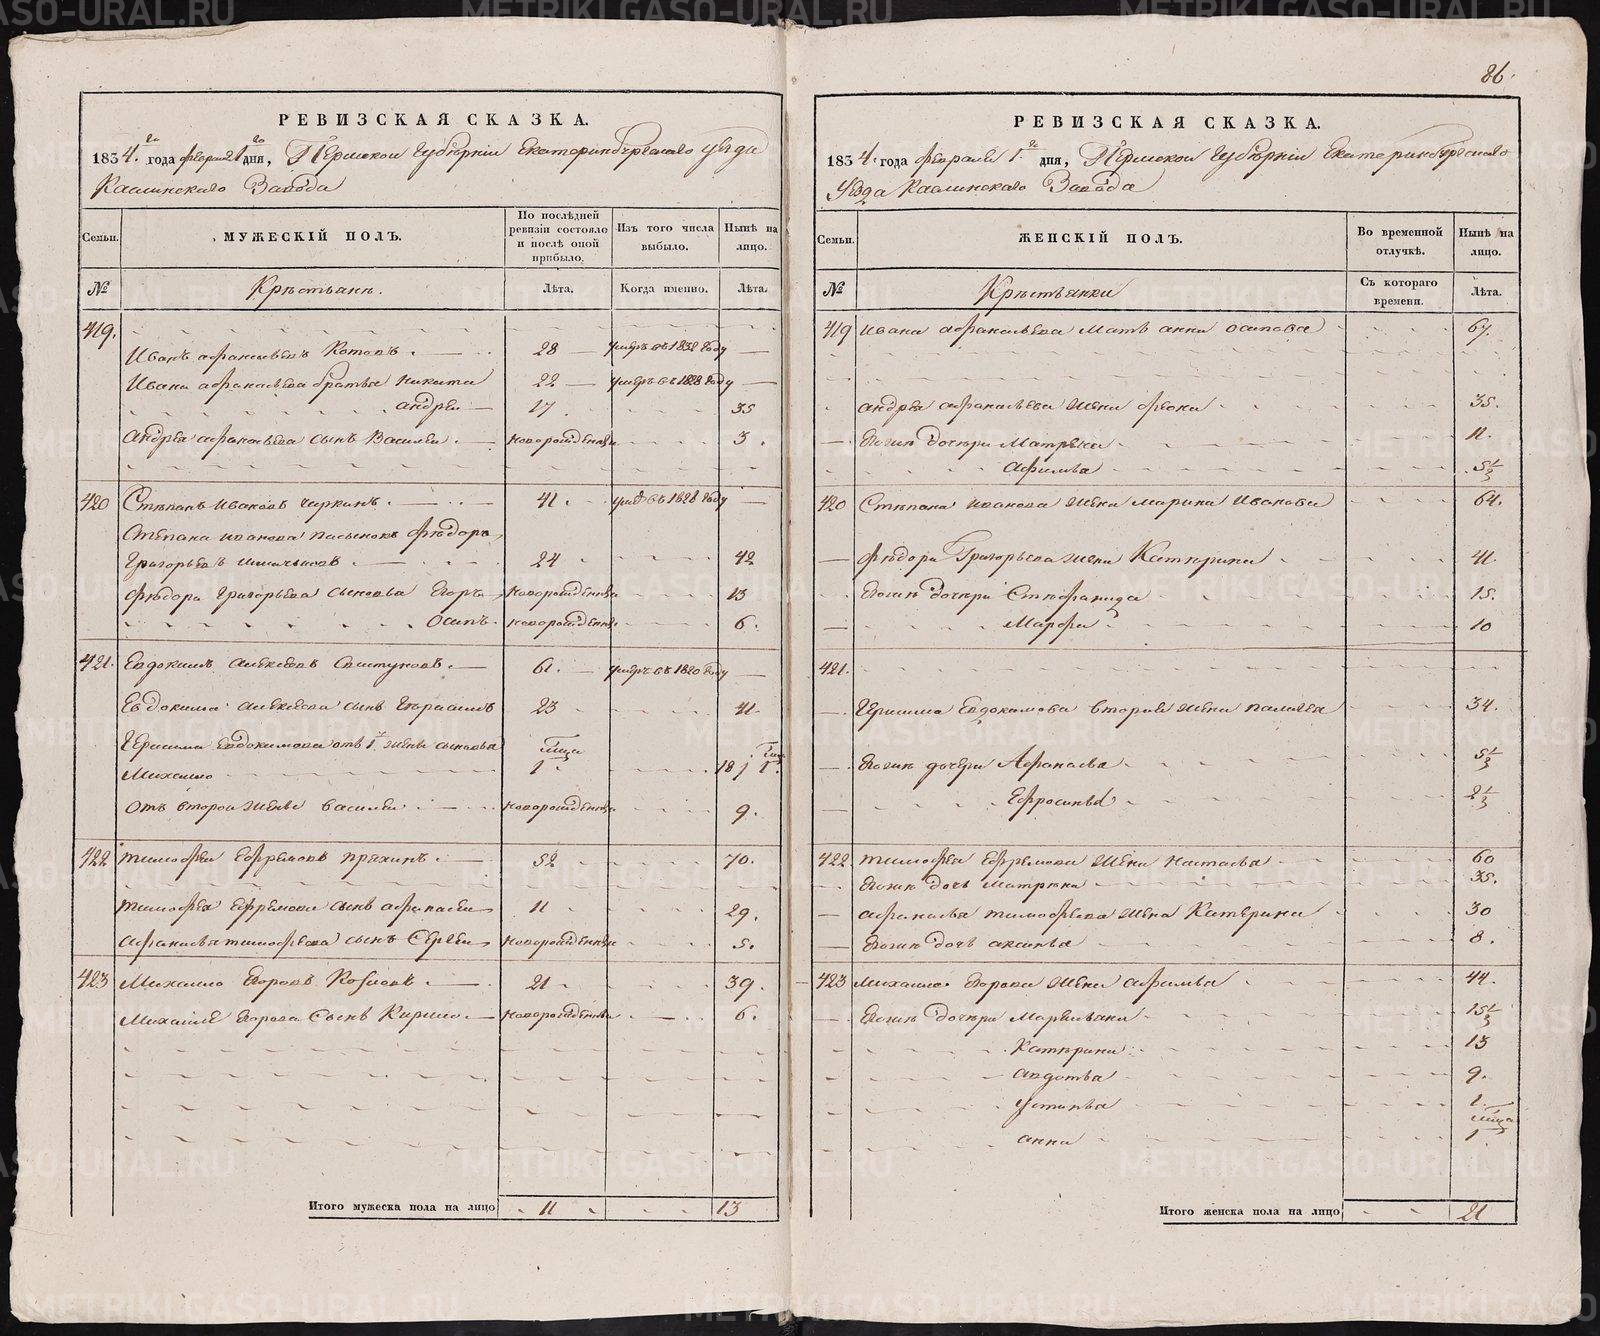 86.
РЕВИЗСКАЯ СКАЗКА.
1834. года февраля 1 дня, Пермской Губерніи Екатеринбургскаго уезда
Каслинскаго Завода
Семьи.
МУЖЕСКІЙ ПОЛЪ.
По послѣдней ревизіи состояло и послѣ оной прибыло.
Изъ того числа выбыло.
Нынѣ на лицо.
№
Крестьяне.
Лѣта.
Когда именно.
Лѣта.
419.
Иванъ афанасьевъ Котовъ. 28 умеръ въ 1832 году
Ивана афанасьева братья Никита 22 умеръ въ 1828 году
андрей 17 35
Андрея афанасьева сынъ Василей. новорожденны 3.
420 Степанъ Ивановъ Чиркинъ. 41. умеръ въ 1828 году
Степана иванова пасынокъ Федоръ
Григорьевъ 24 42
Федора григорьева сыновья Егоръ новорожденны 13
Осипъ новорожденны 6.
421. Евдокимъ алексеевъ Свистуновъ. 61. умеръ въ 1820 году
Евдокима алексеева сынъ Герасимъ 23 41.
Герасима Евдокимова отъ 1й жены сыновья
Михаило 1. 18
отъ второй жены василей новорожденны 9.
422 тимофей ефремовъ пряхинъ. 52 70.
тимофея Ефремова сынъ афанасей 11 29.
афанасья тимофеева сынъ Сергей новорожденны 5.
423 Михаило Егоровъ 21 39.
Михаиле Егорова Сынъ Кирило новорожденны 6.
Итого мужеска пола на лицо 11 13
РЕВИЗСКАЯ СКАЗКА.
1834. года февраля 1 дня, Пермской Губерніи Екатеринбургскаго
Уезда Каслинскаго Завода
Семьи.
ЖЕНСКІЙ ПОЛЪ.
Во временной отлучкѣ.
Нынѣ на лицо.
№
Крестьянки
Съ котораго времени.
Лѣта.
419 Ивана афанасьева Мать анна осипова 67.
андрея афанасьева жена фекла 35.
Евоже дочери Матрена 11.
афимья 5 1/2
420 Степана иванова жена Марина Иванова 64.
федора Григорьева жена Катерина 41.
Евоже дочери Стефанида 15.
Марфа 10
421.
Герасима Евдокимова вторая жена палагея 34.
Евоже дочери Афанасья 5 1/2
Ефросинья 2 1/2
422 тимофея Ефремова жена настасья 60
Евоже дочь матрена 35.
афанасья тимофеева жена Катерина 30
Евоже дочь аксинья 8.
423 Михаило Егорова жена афимья 44.
Евоже дочери Маремьяна 15 1/2
Катерина 13
авдотья 9.
устинья 2.
анна 1
Итого женска пола на лицо 21
METRIKI.GASO-URAL.RU